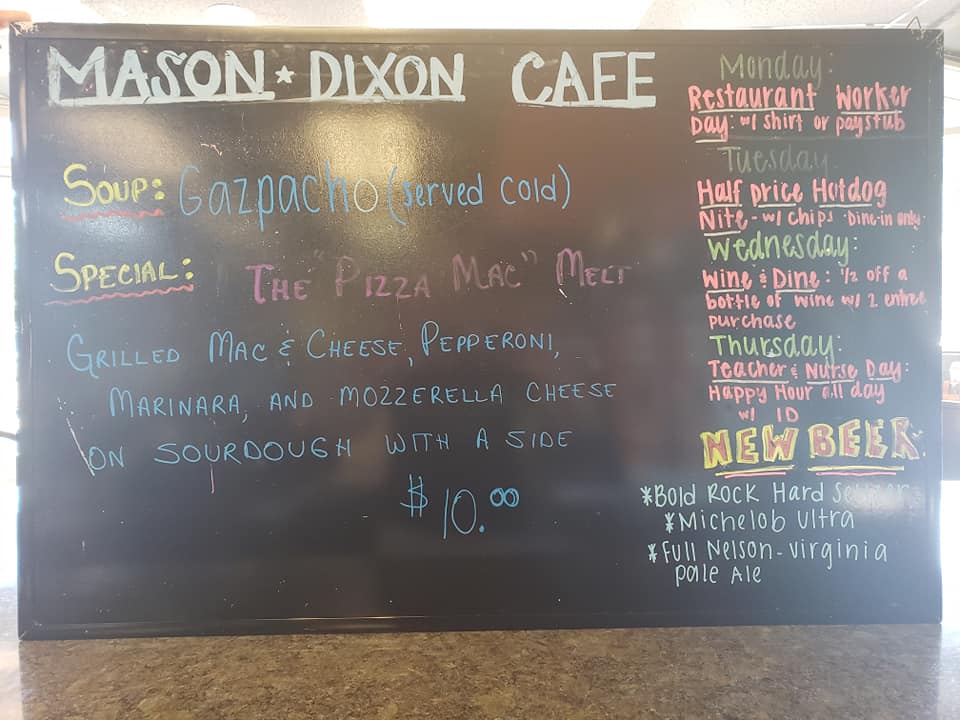 MASON * DIXON CAFE
SOUP: Gazpacho (served cold)
SPECIAL: THE "PIZZA MAC" MELT
GRILLED MAC & CHEESE, PEPPERONI,
MARINARA, AND MOZZERELLA CHEESE
ON SOURDOUGH WITH A SIDE
$10.00
Monday:
Restaurant Worker
Day: w/ shirt or paystub
Tuesday
Half price Hotdog
Nite - w/ chips · Dine-in only·
Wednesday:
Wine & Dine: 1/2 off a
bottle of wine w/ 2 entree
purchase
Thursday:
Teacher & Nurse Day:
Happy Hour all day
w/ ID
NEW BEER
*Bold Rock Hard Seltzer
*Michelob Ultra
*Full Nelson-virginia
pale Ale